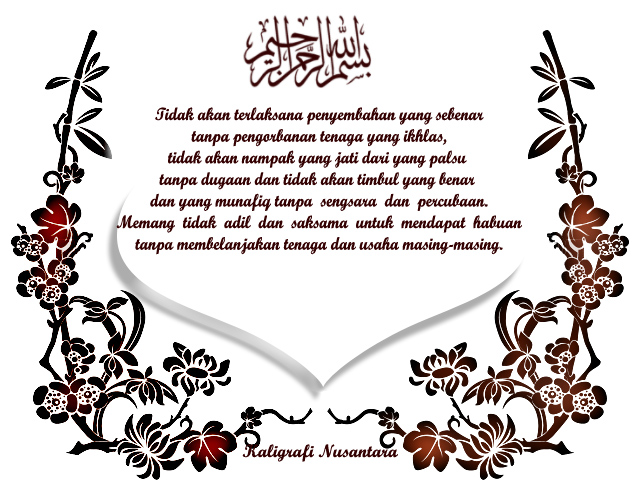 بسم الله الرحمن الرحيم
Tidak akan terlaksana penyembahan yang sebenar
tanpa pengorbanan tenaga yang ikhlas,
tidak akan nampak yang jati dari yang palsu
tanpa dugaan dan tidak akan timbul yang benar
dan yang munafiq tanpa sengsara dan percubaan.
Memang tidak adil dan saksama untuk mendapat habuan
tanpa membelanjakan tenaga dan usaha masing-masing.
Kaligrafi Nusantara